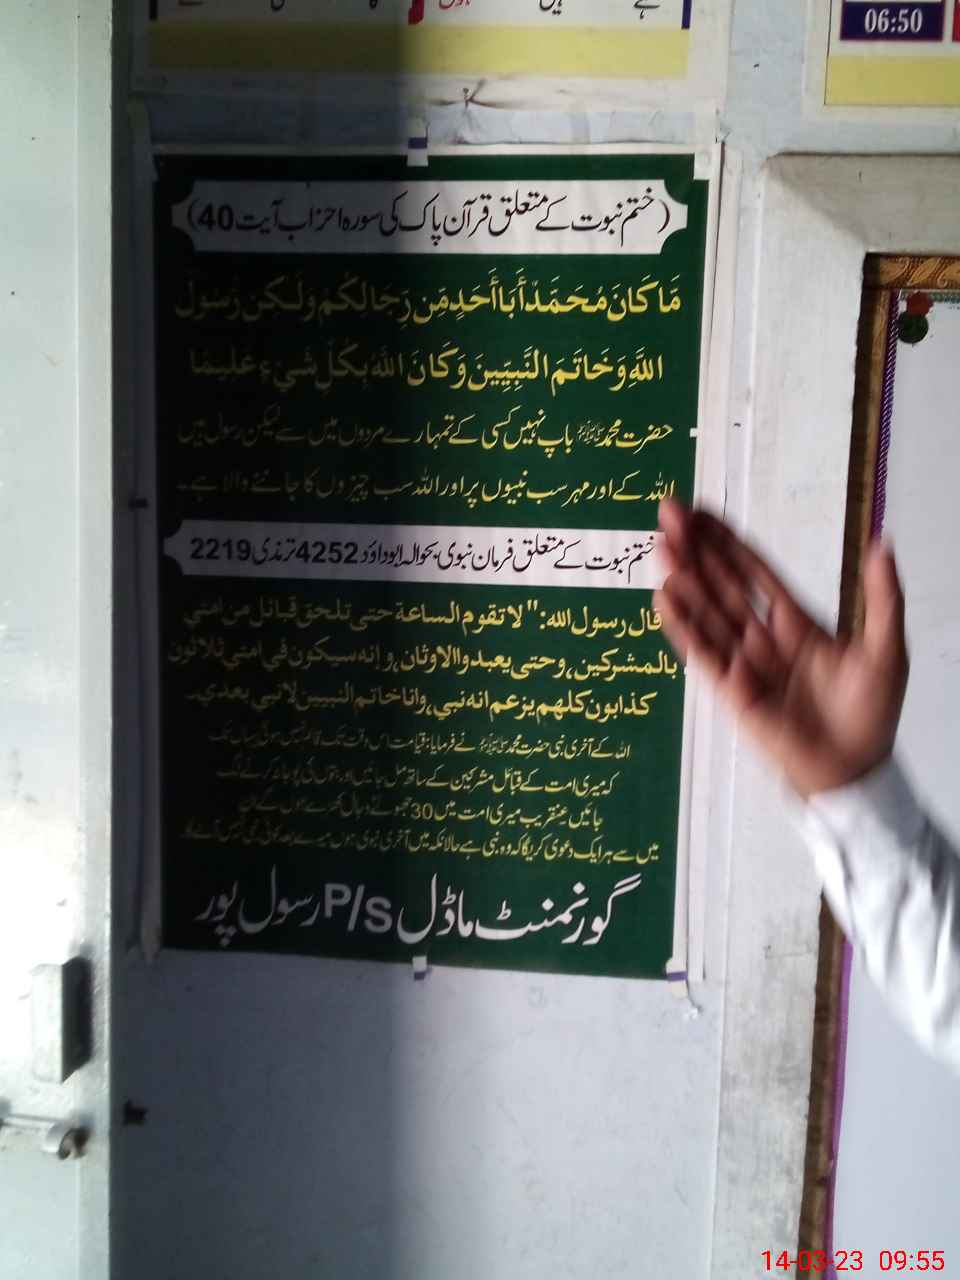 06:50
(ختم نبوت کے متعلق قرآن پاک کی سورہ احزاب آیت 40)
مَا كَانَ مُحَمَّدٌ أَبَا أَحَدٍ مِّن رِّجَالِكُم وَلَٰكِن رَّسُولَ
اللَّهِ وَخَاتَمَ النَّبِيِّينَ وَكَانَ اللَّهُ بِكُلِّ شَيْءٍ عَلِيمًا
حضرت محمد ﷺ باپ نہیں کسی کے تمہارے مردوں میں سے لیکن رسول ہیں
اللہ کے اور مہر سب نبیوں پر اور اللہ سب چیزوں کا جاننے والا ہے۔
ختم نبوت کے متعلق فرمان نبوی بحوالہ ابوداؤد 4252 ترمذی 2219
قال رسول الله: "لا تقوم الساعة حتى تلحق قبائل من امتي
بالمشركين، وحتى يعبدوا الاوثان، وإنه سيكون في امتي ثلاثون
كذابون كلهم يزعم انه نبي، وانا خاتم النبيين لا نبي بعدي۔
اللہ کے آخری نبی حضرت محمد ﷺ نے فرمایا: قیامت اس وقت تک قائم نہیں ہوگی یہاں تک
کہ میری امت کے قبائل مشرکین کے ساتھ مل جائیں اور بتوں کی پوجا نہ کرنے لگ
جائیں عنقریب میری امت میں 30 جھوٹے دجال کھڑے ہوں گے ان
میں سے ہر ایک دعوی کریگا کہ وہ نبی ہے حالانکہ میں آخری نبوی ہوں میرے بعد کوئی نبی نہیں آئے گا۔
گورنمنٹ ماڈل P/S رسول پور
14-03-23 09:55